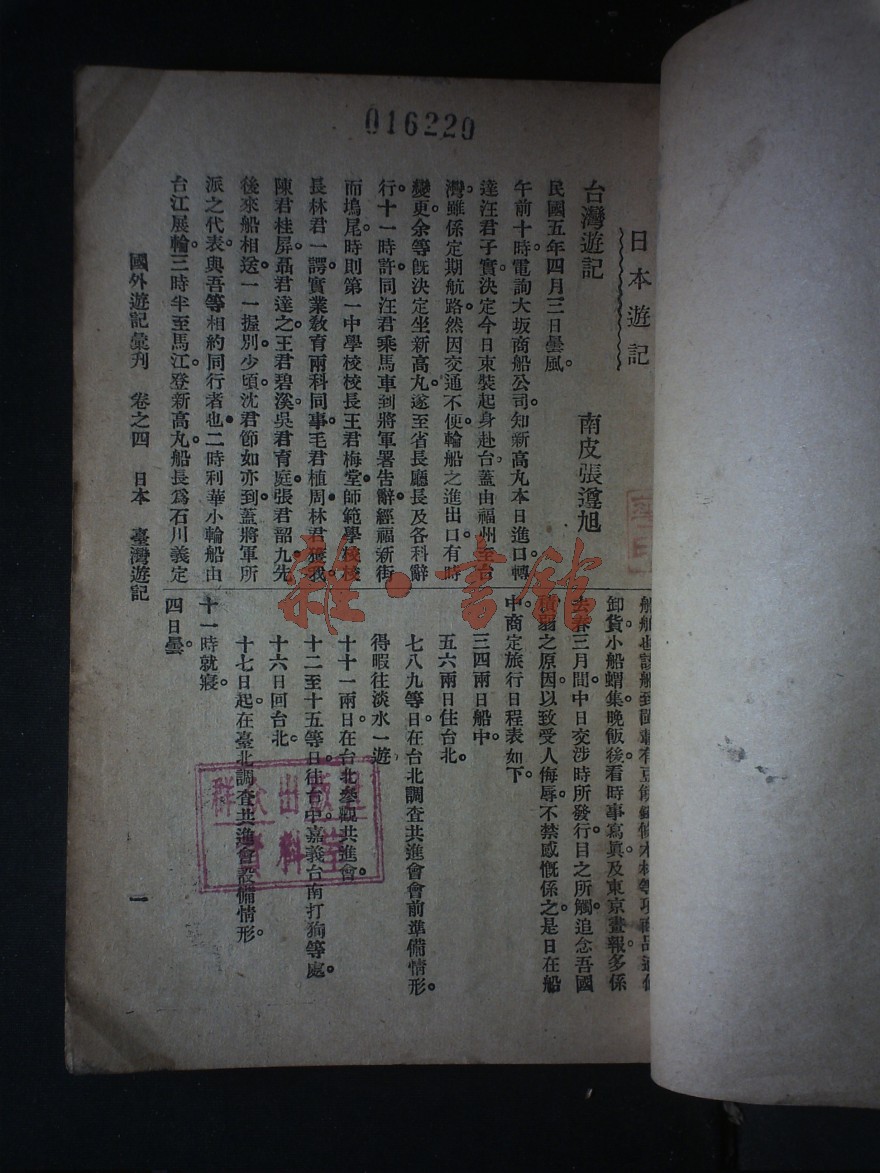 016220
日本遊記
台灣遊記
南皮張遵旭
民國五年四月三日曇風。
午前十時電詢大坂商船公司知新高丸本日進口。轉
達汪君子實決定今日束裝起身赴台。蓋由福州至台
灣。雖係定期航路。然因交通不便。輪船之進出口有時
變更。余等既決定坐新高丸。遂至省長廳長及各科辭
行。十一時許同汪君乘馬車到將軍署告辭。經福新街
而塢尾。時則第一中學校校長王君梅堂。師範學校校
長林君一諤。實業教育兩科同事。毛君植周。林君獲我。
陳君桂屏。聶君達之。王君碧溪。吳君育庭。張君韶九。先
後來船相送。一一握別。少頃沈君節如亦到。蓋將軍所
派之代表。與吾等相約同行者也。二時利華小輪船由
台江展輪。三時半至馬江。登新高丸。船長爲石川義定
卸貨。小船蝟集。晚飯後看時事寫眞及東京畫報。多係
去春三月間中日交涉時所發行。目之所觸。追念吾國
積弱之原因。以致受人侮辱。不禁感慨係之。是日在船
中。商定旅行日程表如下。
三四兩日船中。
五六兩日住台北。
七八九等日。在台北調查共進會會前準備情形。
得暇往淡水一遊
十十一兩日。在台北參觀共進會。
十二至十五等日。往台中嘉義台南打狗等處。
十六日回台北。
十七日起。在臺北調查共進會設備情形。
十一時就寢。
四日曇。
國外遊記彙刋 卷之四 日本 臺灣遊記
一
雜·書館
群众出版社
資料室